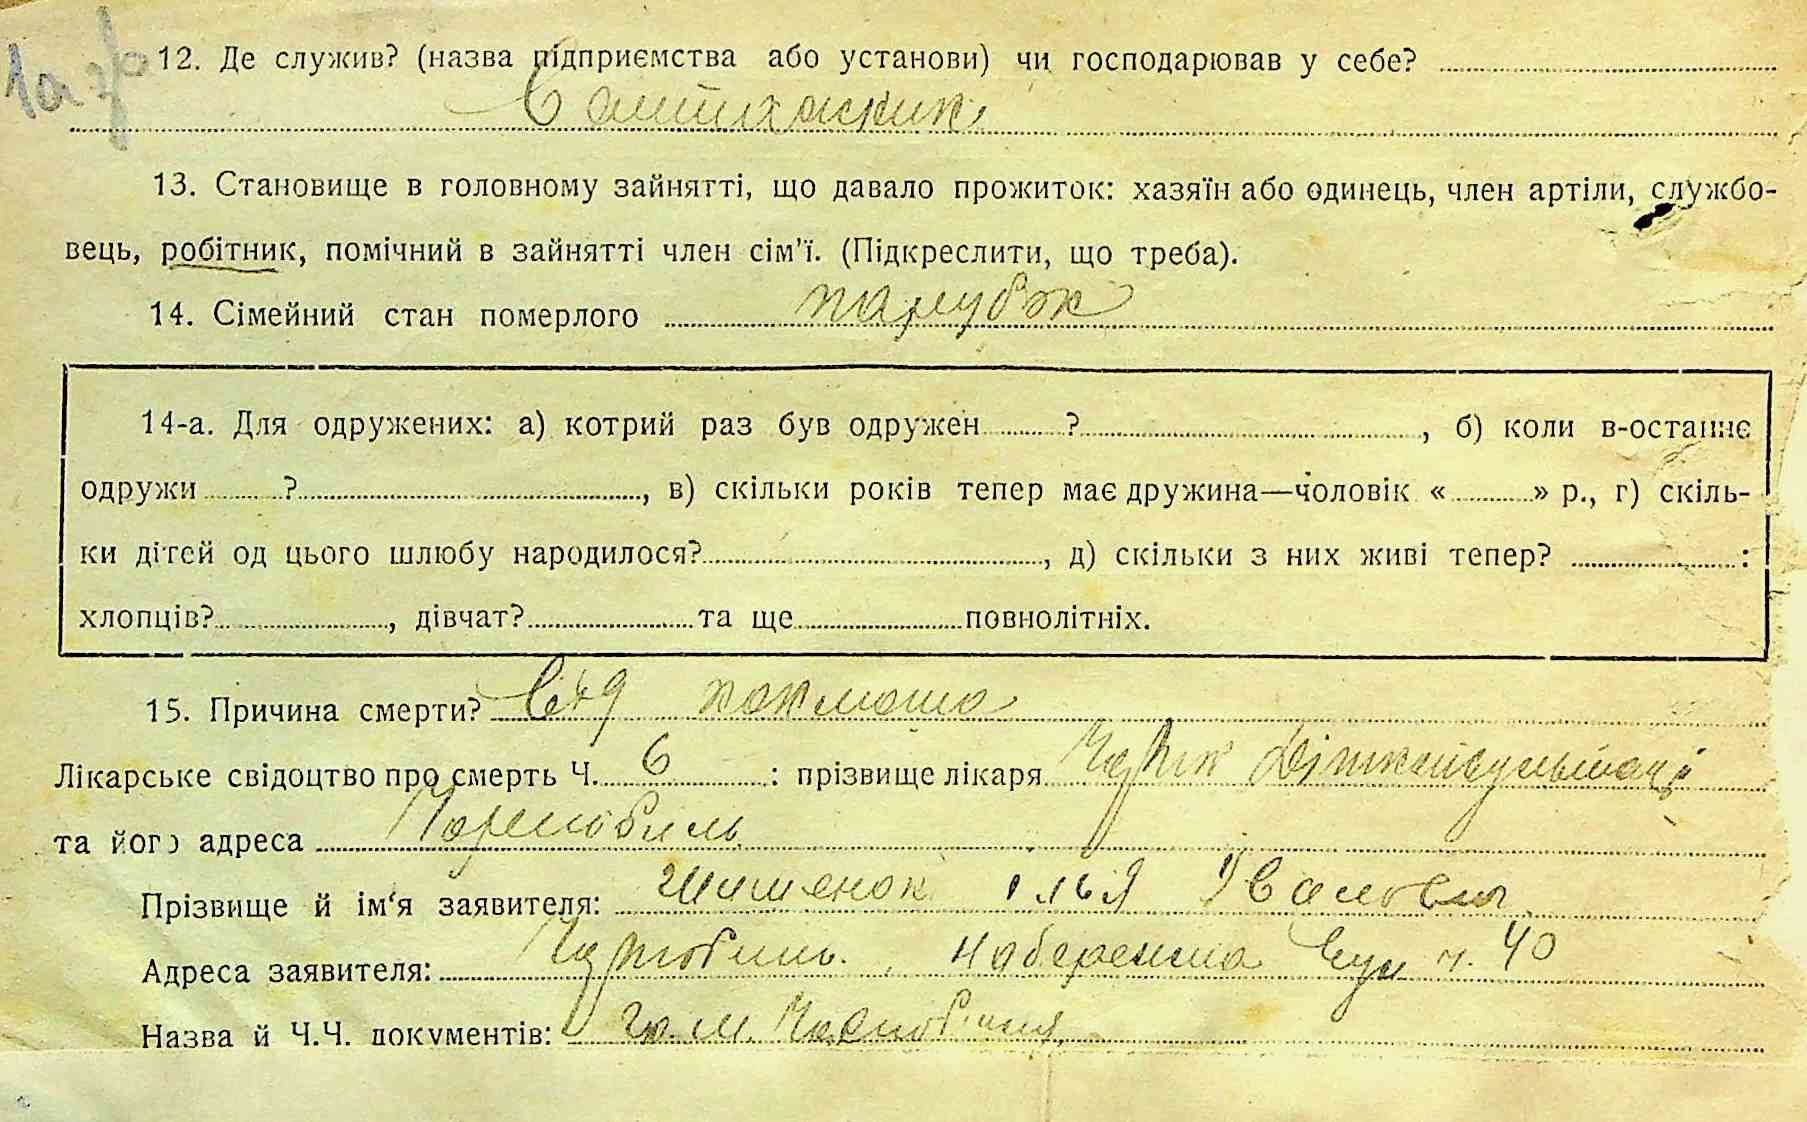 12. Де служив? (назва підприємства або установи) чи господарював у себе?
13. Становище в головному зайнятті, що давало прожиток: хазяїн або одинець, член артіли, службо-
вець, робітник, помічний в зайнятті член сім'ї. (Підкреслити, що треба).
14. Сімейний стан померлого парубок
14-а. Для одружених: а) котрий раз був одружен ?, б) коли в-останнє
одружи ?, в) скільки років тепер має дружина—чоловік « » р., г) скіль-
ки дітей од цього шлюбу народилося?, д) скільки з них живі тепер? :
хлопців?, дівчат? та ще повнолітніх.
15. Причина смерти? Від
Лікарське свідоцтво про смерть Ч. 6 : прізвище лікаря
та його адреса Чорнобиль
Прізвище й ім'я заявителя: Шишенок Ілья
Адреса заявителя: Чорнобиль. Набережна вул ч. 40
Назва й Ч.Ч. документів: